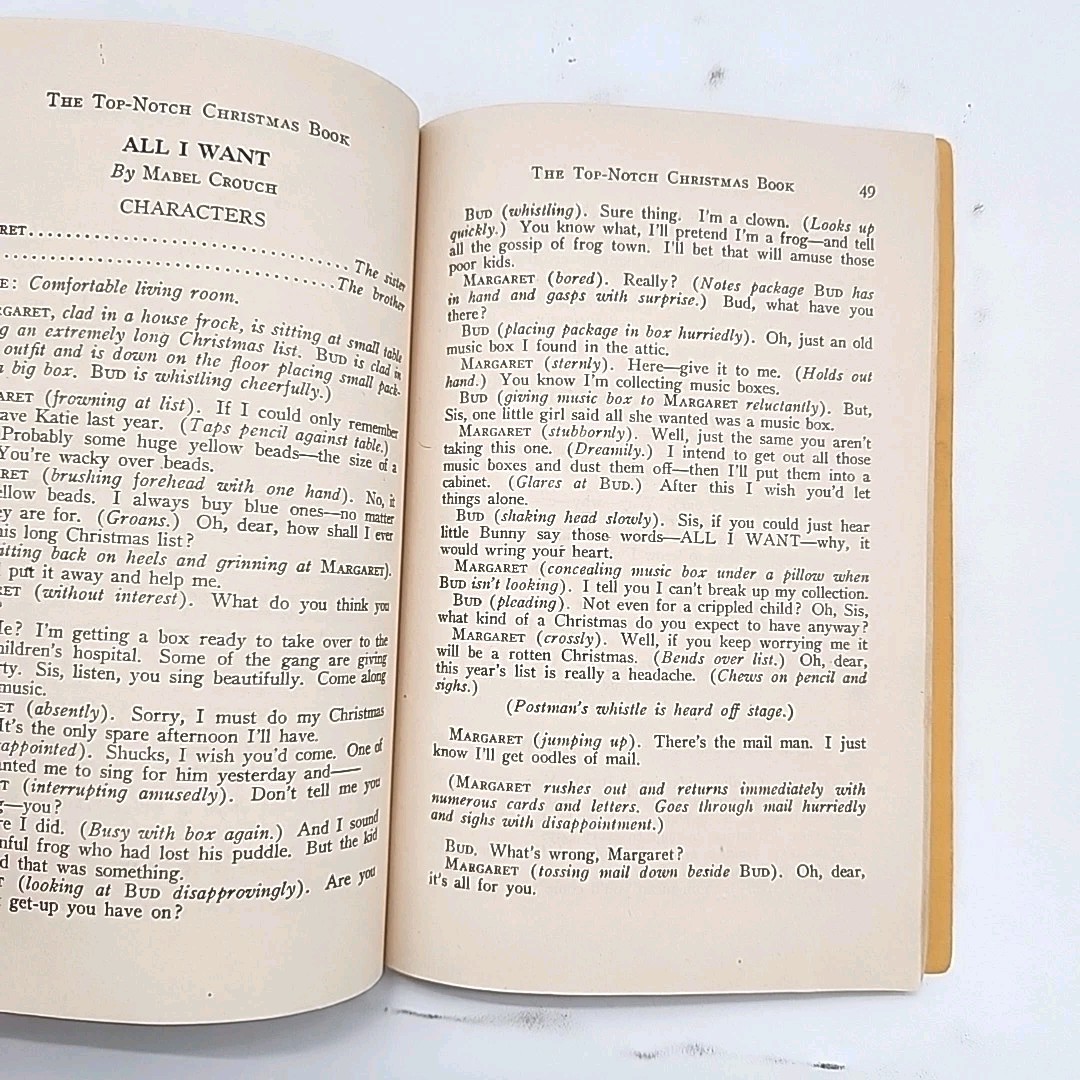 THE TOP-NOTCH CHRISTMAS BOOK
ALL I WANT
By MABEL CROUCH
CHARACTERS
The sister
The brother
Comfortable living room.
clad in a house frock, is sitting at small table
an extremely long Christmas list. BUD is clad in
outfit and is down on the floor placing small pack-
big box. BUD is whistling cheerfully.)
(frowning at list). If I could only remember
Katie last year. (Taps pencil against table.)
Probably some huge yellow beads—the size of a
You're wacky over beads.
(brushing forehead with one hand). No, it
beads. I always buy blue ones—no matter
are for. (Groans.) Oh, dear, how shall I ever
long Christmas list?
back on heels and grinning at MARGARET).
put it away and help me.
(without interest). What do you think you
I'm getting a box ready to take over to the
hospital. Some of the gang are giving
Sis, listen, you sing beautifully. Come along
music.
(absently). Sorry, I must do my Christmas
It's the only spare afternoon I'll have.
Shucks, I wish you'd come. One of
me to sing for him yesterday and——
(interrupting amusedly). Don't tell me you
—you?
I did. (Busy with box again.) And I sound
frog who had lost his puddle. But the kid
that was something.
(looking at BUD disapprovingly). Are you
get-up you have on?
THE TOP-NOTCH CHRISTMAS BOOK 49
BUD (whistling). Sure thing. I'm a clown. (Looks up
quickly.) You know what, I'll pretend I'm a frog—and tell
all the gossip of frog town. I'll bet that will amuse those
poor kids.
MARGARET (bored). Really? (Notes package BUD has
in hand and gasps with surprise.) Bud, what have you
there?
BUD (placing package in box hurriedly). Oh, just an old
music box I found in the attic.
MARGARET (sternly). Here—give it to me. (Holds out
hand.) You know I'm collecting music boxes.
BUD (giving music box to MARGARET reluctantly). But,
Sis, one little girl said all she wanted was a music box.
MARGARET (stubbornly). Well, just the same you aren't
taking this one. (Dreamily.) I intend to get out all those
music boxes and dust them off—then I'll put them into a
cabinet. (Glares at BUD.) After this I wish you'd let
things alone.
BUD (shaking head slowly). Sis, if you could just hear
little Bunny say those words—ALL I WANT—why, it
would wring your heart.
MARGARET (concealing music box under a pillow when
BUD isn't looking). I tell you I can't break up my collection.
BUD (pleading). Not even for a crippled child? Oh, Sis,
what kind of a Christmas do you expect to have anyway?
MARGARET (crossly). Well, if you keep worrying me it
will be a rotten Christmas. (Bends over list.) Oh, dear,
this year's list is really a headache. (Chews on pencil and
sighs.)
(Postman's whistle is heard off stage.)
MARGARET (jumping up). There's the mail man. I just
know I'll get oodles of mail.
(MARGARET rushes out and returns immediately with
numerous cards and letters. Goes through mail hurriedly
and sighs with disappointment.)
BUD. What's wrong, Margaret?
MARGARET (tossing mail down beside BUD). Oh, dear,
it's all for you.